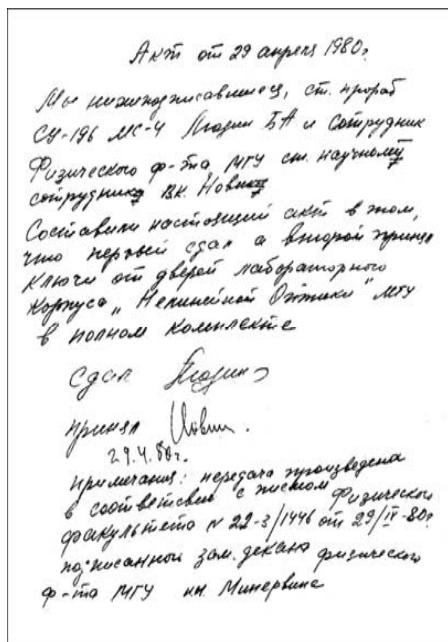 Акт от 29 апреля 1980г.
Мы нижеподписавшиеся, ст. прораб
СУ-196 МС-4 Людин БА и Сотрудник
Физического ф-та МГУ ст. научному
сотруднику ВК. Новик
Составили настоящий акт в том,
что первый сдал а второй принял
ключи от дверей лабораторного
корпуса „Нелинейной Оптики" МГУ
в полном комплекте
Сдал
принял Новик.
29.4.80г.
примечания: передача произведена
в соответствии с письмом Физического
факультета N 22-3/1446 от 29/IV-80г
подписанной зам. декана физического
ф-та МГУ Минервина